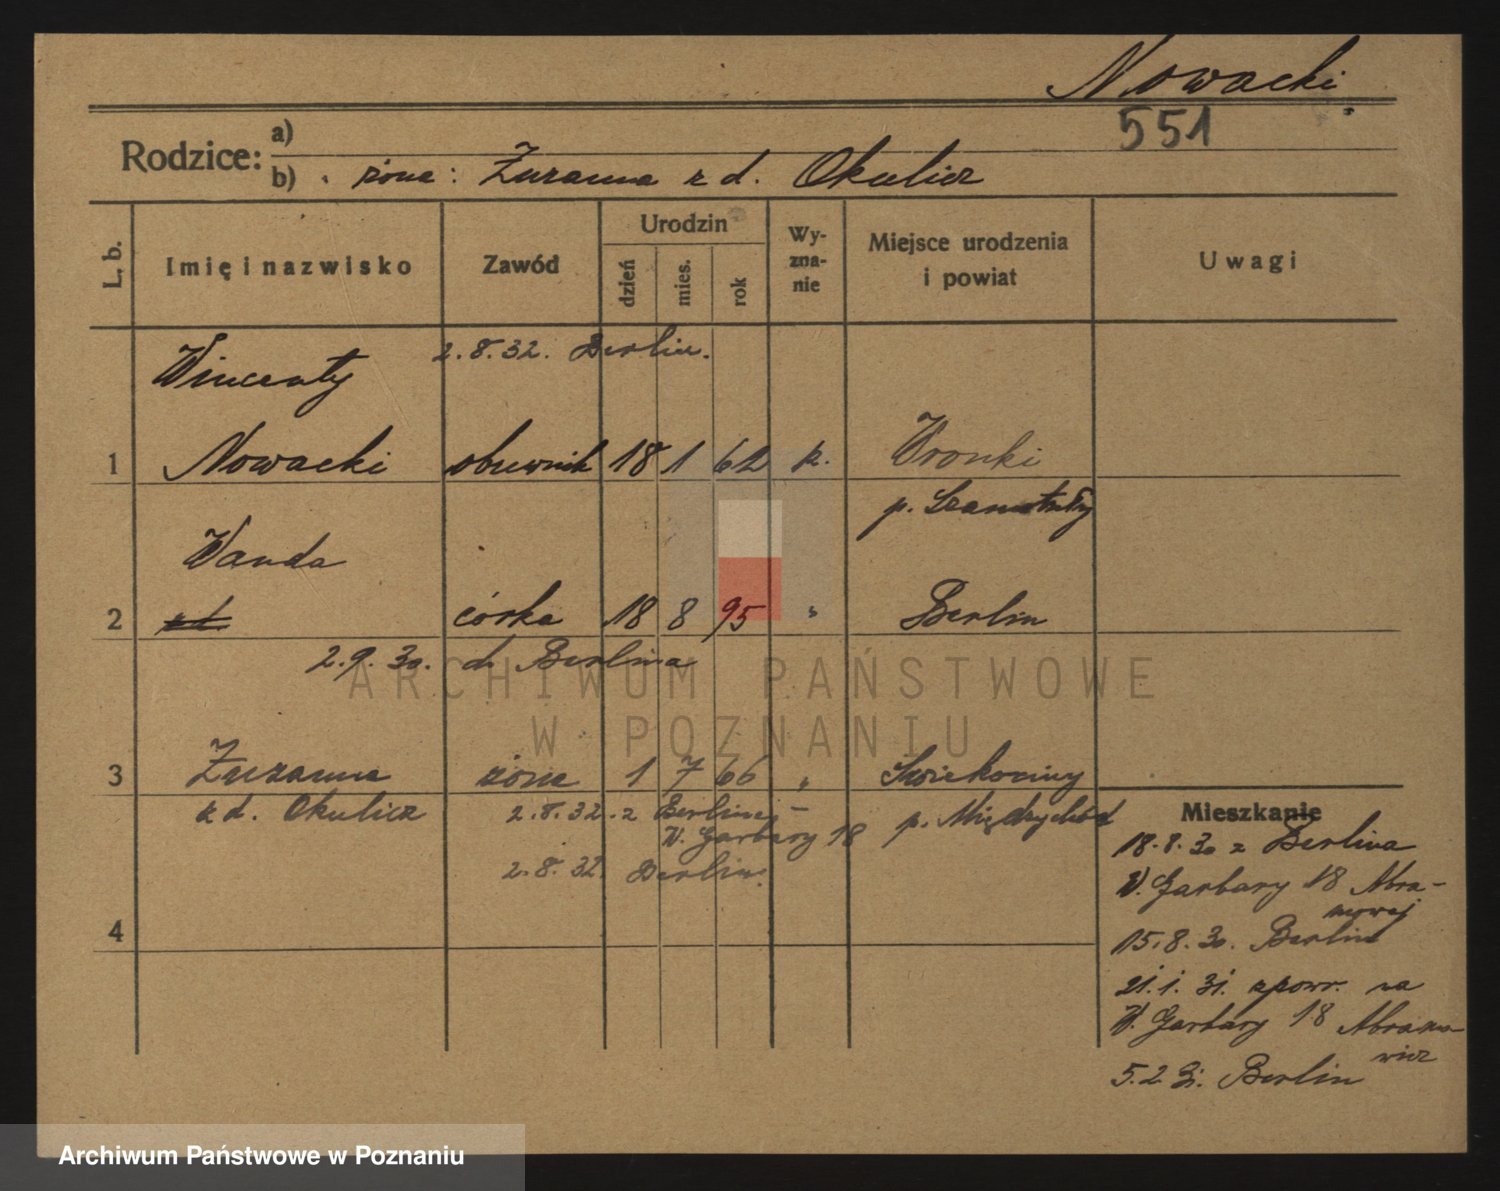 Nowacki
551
Rodzice: a)
b) żona: Zuzanna z d. Okulicz
L. b. Imię i nazwisko Zawód Urodzin dzień mies. rok Wy-zna-nie Miejsce urodzenia i powiat Uwagi
2.8.32. Berlin.
Wincenty
1 Nowacki obuwnik 18 1 62 k. Wronki
p. Szamotuły
Wanda
2 córka 18 8 95 " Berlin
2.9.30. do Berlina
3 Zuzanna żona 1 7 66 "
z d. Okulicz 2.8.32. z Berlina, - p. Międzychód
W. Garbary 18
2.8.32. Berlin.
4
Mieszkanie
18.8.30 z Berlina
W. Garbary 18 Abra-
mowej
15.8.30. Berlin
21.1.31. zpowr. na
W. Garbary 18 Abramo-
wicz
5.2.31. Berlin
ARCHIWUM PAŃSTWOWE
W POZNANIU
Archiwum Państwowe w Poznaniu